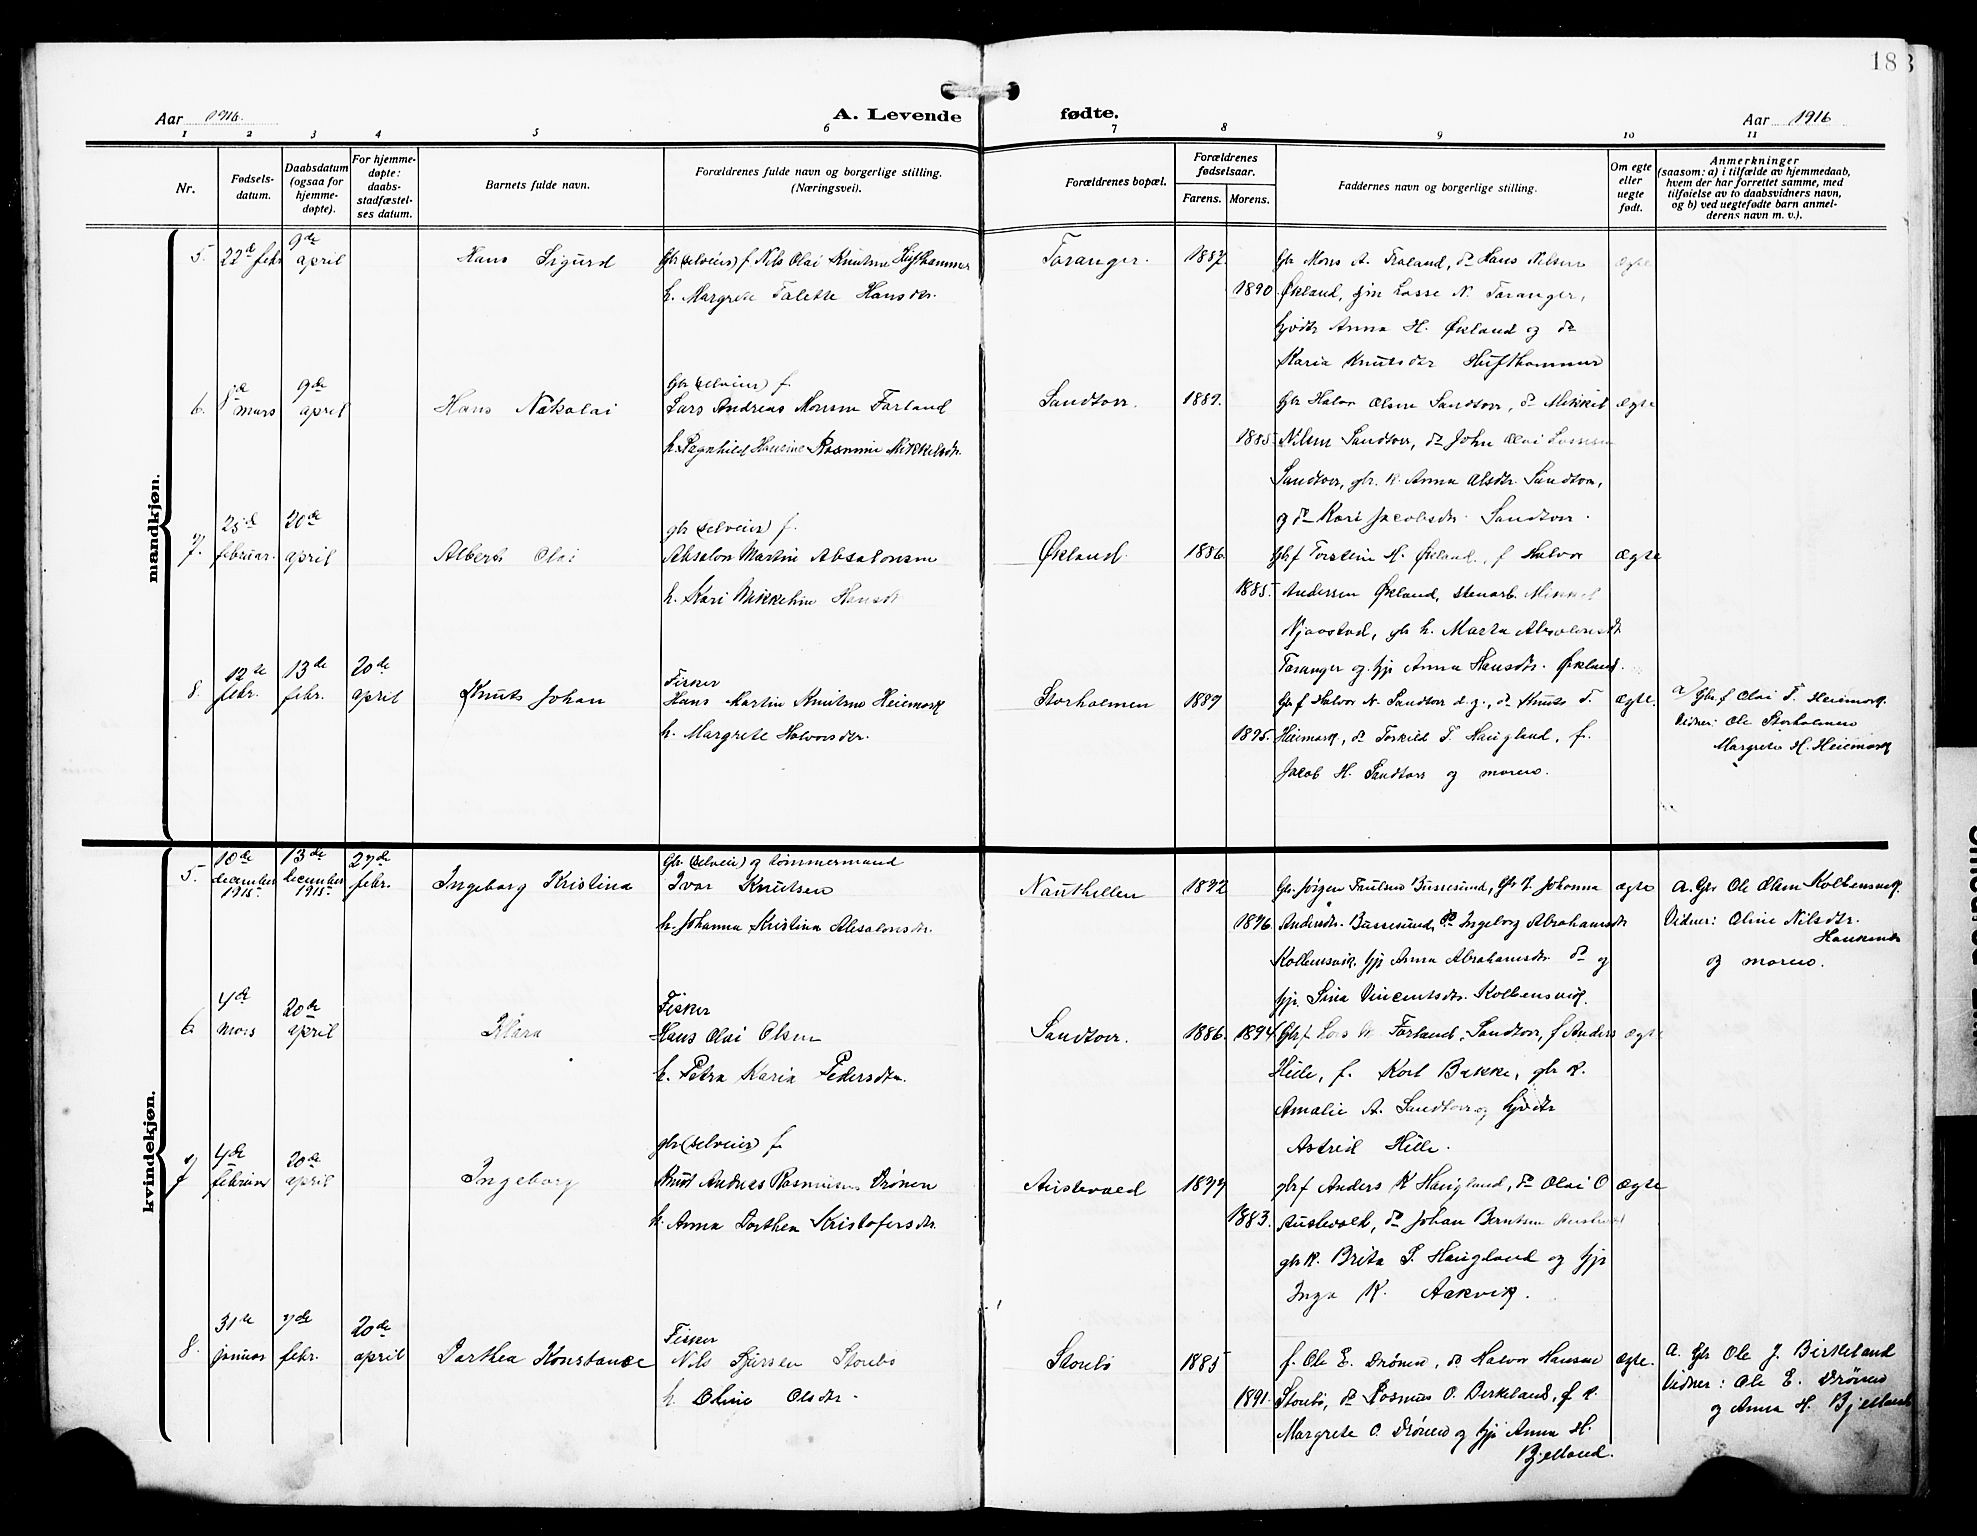 18
Aar 1916. A. Levende fødte. Aar 1916
1 2 3 4 5 6 7 8 9 10 11
Nr.
Fødsels-
datum.
Daabsdatum
(ogsaa for
hjemme-
døpte).
For hjemme-
døpte:
daabs-
stadfæstel-
ses datum.
Barnets fulde navn.
Forældrenes fulde navn og borgerlige stilling.
(Næringsvei).
Forældrenes bopæl.
Forældrenes
fødselsaar.
Farens. Morens.
Faddernes navn og borgerlige stilling.
Om egte
eller
uegte
født.
Anmerkninger
(saasom: a) i tilfælde av hjemmedaab,
hvem der har forrettet samme, med
tilføielse av to daabsvidners navn,
og b) ved uegtefødte barn anmel-
derens navn m. v.).
mandkjøn.
5. 22de febr
9de
april
Hans Sigurd
gbr (selveier) f. Nils Olai Knutsen Hufthammer
h. Margrete Talette Hansdtr.
Toranger. 1887.
1890.
Gbr Mons A. Troland, do Hans Nilsen
Økland, Lasse N. Toranger,
Anna H. Økland og do
Karia Knutsdtr Hufthammer
ægte
6.
mars
9de
april
Hans Nikolai
Gbr (selveier) f.
Lars Andreas Monsen Førland
h. Ragnhild Hansine Rasmine Mikkelsdtr.
Sandtorv. 1889.
1885
Gbr Halvor Olsen Sandtorv, do Mikkel
Nilsen Sandtorv, do John Olai Larsen
Sandtorv, gbr. k. Anna Olsdtr. Sandtorv,
og do Kari Jacobsdtr. Sandtorv.
ægte
7.
25de
februar.
20de
april
Albert Olai
gbr (selveier) f.
Absalon Martin Absalonsen
h. Kari Mikkeline Hansdtr
Økland. 1886.
1885.
gbrf Torstein H. Økland, f Halvor
Andersen Økland, stenarb. Mikkel
Njaastad, gbr k. Marta Absalonsdtr
Toranger og pje Anna Hansdtr. Økland.
ægte
8.
12te
febr.
13de
febr.
20de
april
Knut Johan
Fisker
Hans Martin Knutsen Heiemark
h. Margrete Halvorsdtr.
Storholmen 1889
1895.
Gbrf Halvor N. Sandtorv d.y., do Knut T.
Heimark, do Torkild T. Haugland, f.
Jacob H. Sandtorv og moren.
ægte.
a) Gbr. f Olai T. Heimark.
Vidner: Ole Storholmen
Margrete H. Heiemark
kvindekjøn.
5.
10de
december
1915.
13de
december
1915.
27de
febr.
Ingeborg Kristina
Gbr. (selveier) og tømmermand
Ivar Knutsen
h. Johanna Kristina Absalonsdtr.
Nauthellen 1892
1896.
Gbr. Jørgen Bussesund, gbr k. Johanna
Andersdtr. Bussesund, do Ingeborg Abrahamsdtr
Kolbensvik, pje Anna Abrahamsdtr. do og
pje. Sina Vincentsdtr. Kolbensvik.
ægte
a. Gbr Ole Olsen Kolbensvik.
Vidner: Oline Nilsdtr.
og moren.
6.
4de
mars
20de
april
Klara
Fisker
Hans Olai Olsen
h. Petra Karia Pedersdtr.
Sandtorv. 1886. 1894
Gbrf Lars M Førland, Sandtorv, f Anders
Hille, f. Karl Bakke, gbr k.
Amalie A. Sandtorv og
Astrid Hille.
ægte
7
4de
februar
20de
april
Ingeborg
gbr (selveier) f.
Knut Andreas Rasmussen Drønen
h. Anna Dorthea Kristofersdtr.
Austevold 1879
1883.
gbrf Anders K Haugland, do Olai O
Austevold, do Johan Berntsen Austevold
gbr k. Brita S. Haugland og pje
Inga K. Aakvik.
ægte
8.
31te
januar
7de
febr.
20de
april
Dorthea Konstanse
Fisker
Nils Storebø
h. Oline Olsdtr.
Storebø 1885
1891.
f. Ole E. Drønen, do Halvor Hansen
Storebø, do Rasmus O. Birkeland, f k.
Margrete O. Drønen og pje Anna H.
Bjelland.
ægte.
a. Gbr Ole J. Birkeland
Vidner: Ole E. Drønen
og Anna H. Bjelland